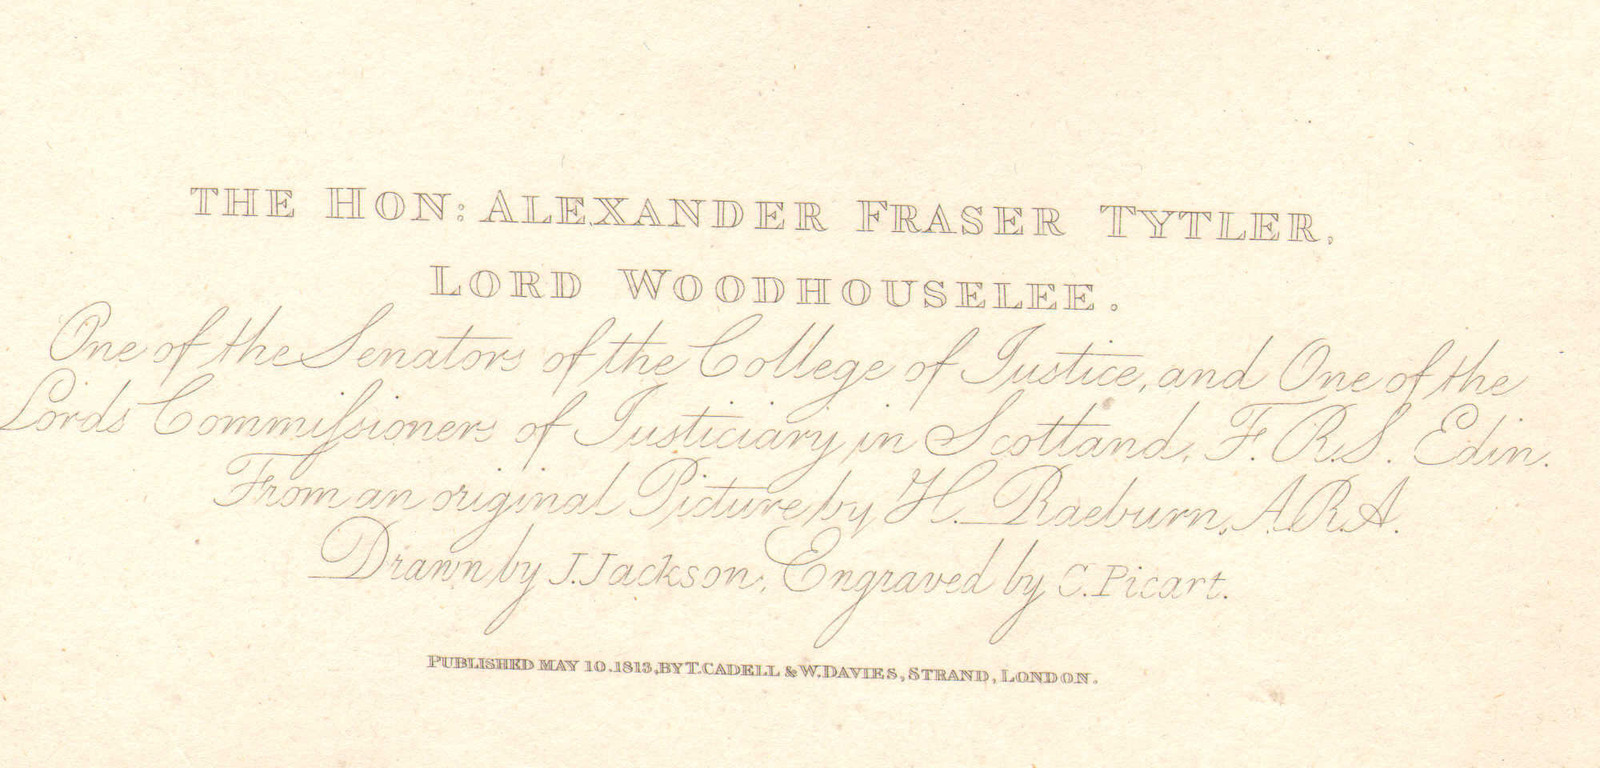 THE HON: ALEXANDER FRASER TYTLER,
LORD WOODHOUSELEE.
One of the Senators of the College of Justice, and One of the
Lords Commiſsioners of Justiciary in Scotland, F.R.S. Edin.
From an original Picture by H. Raeburn, A.R.A.
Drawn by J. Jackson, Engraved by C. Picart.
PUBLISHED MAY 10.1813, BY T. CADELL & W. DAVIES, STRAND, LONDON.